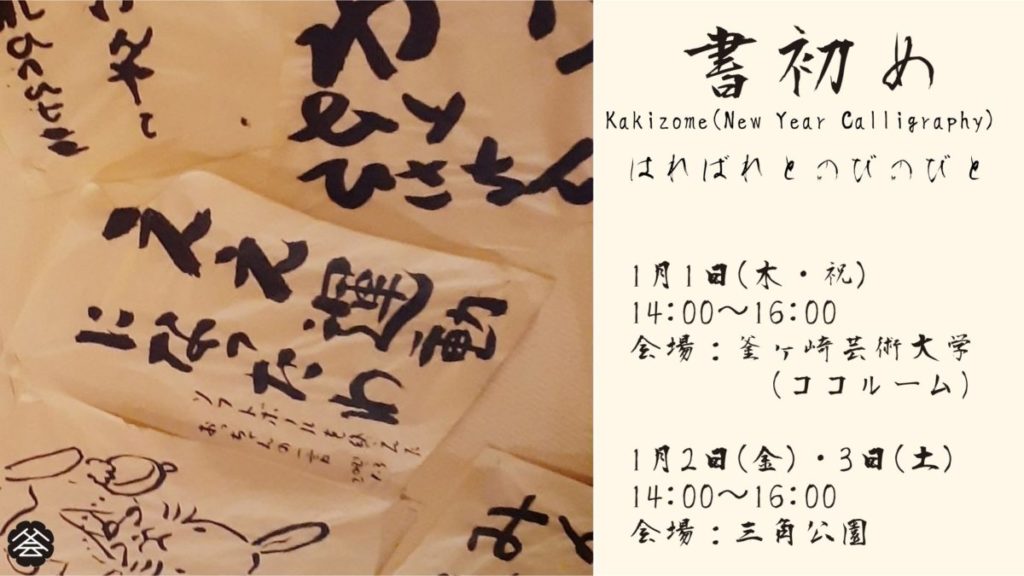 書初め
Kakizome(New Year Calligraphy)
はればれとのびのびと
1月1日(木・祝)
14:00～16:00
会場：釜ヶ崎芸術大学
(ココルーム)
1月2日(金)・3日(土)
14:00～16:00
会場：三角公園
ええ運動
になったわ
ソフトボールを終えた
おっちゃんの一言